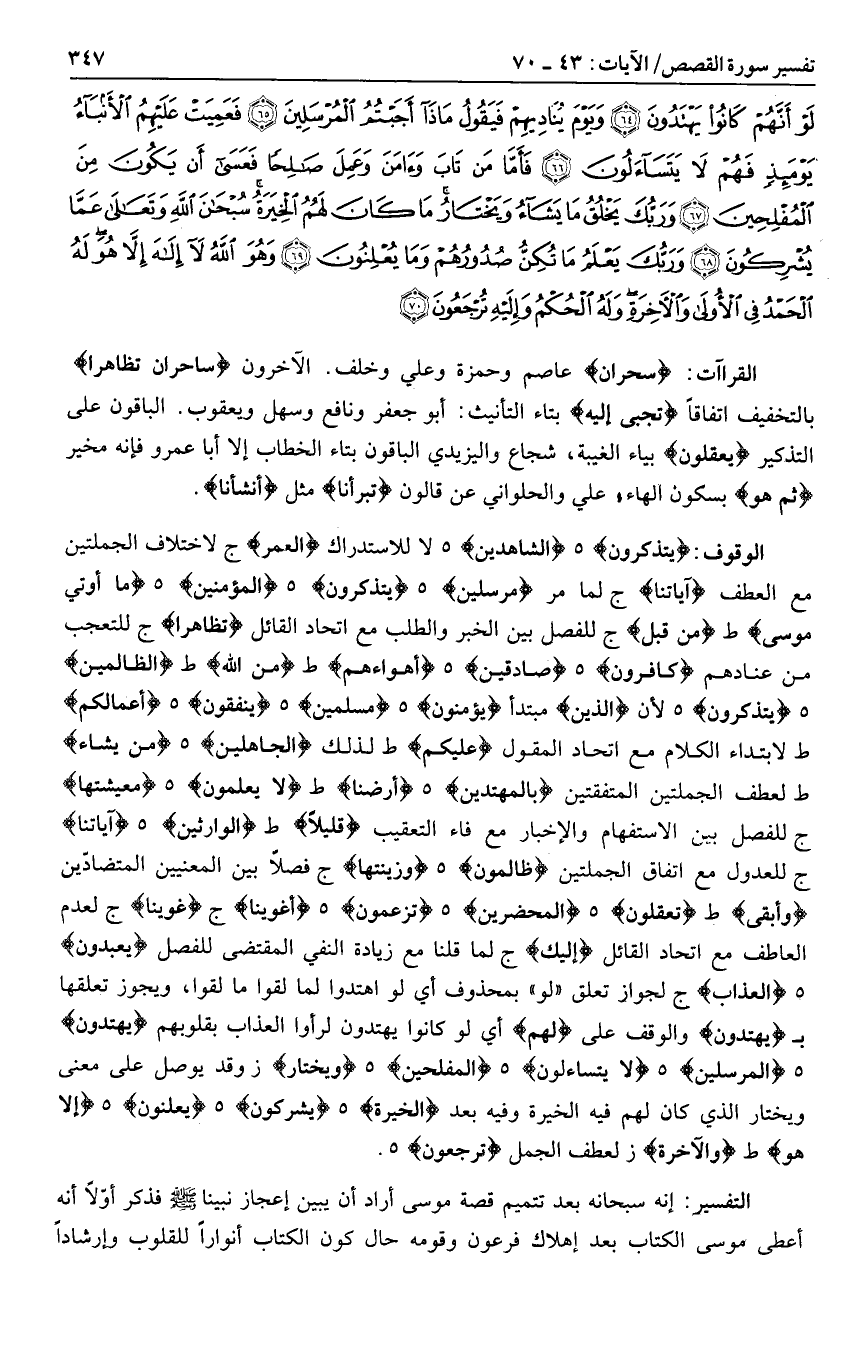 تفسير سورة القصص/ الآيات: ٤٣ ـ ٧٠
٣٤٧
لَوْ أَنَّهُمْ كَانُوا۟ يَهْتَدُونَ ﴿٦٤﴾ وَيَوْمَ يُنَادِيهِمْ فَيَقُولُ مَاذَآ أَجَبْتُمُ ٱلْمُرْسَلِينَ ﴿٦٥﴾ فَعَمِيَتْ عَلَيْهِمُ ٱلْأَنۢبَآءُ
يَوْمَئِذٍ فَهُمْ لَا يَتَسَآءَلُونَ ﴿٦٦﴾ فَأَمَّا مَن تَابَ وَءَامَنَ وَعَمِلَ صَـٰلِحًا فَعَسَىٰٓ أَن يَكُونَ مِنَ
ٱلْمُفْلِحِينَ ﴿٦٧﴾ وَرَبُّكَ يَخْلُقُ مَا يَشَآءُ وَيَخْتَارُ ۗ مَا كَانَ لَهُمُ ٱلْخِيَرَةُ ۚ سُبْحَـٰنَ ٱللَّهِ وَتَعَـٰلَىٰ عَمَّا
يُشْرِكُونَ ﴿٦٨﴾ وَرَبُّكَ يَعْلَمُ مَا تُكِنُّ صُدُورُهُمْ وَمَا يُعْلِنُونَ ﴿٦٩﴾ وَهُوَ ٱللَّهُ لَآ إِلَـٰهَ إِلَّا هُوَ ۖ لَهُ
ٱلْحَمْدُ فِى ٱلْأُولَىٰ وَٱلْـَٔاخِرَةِ ۖ وَلَهُ ٱلْحُكْمُ وَإِلَيْهِ تُرْجَعُونَ ﴿٧٠﴾
القراآت: ﴿سحران﴾ عاصم وحمزة وعلي وخلف. الآخرون ﴿ساحران تظاهرا﴾
بالتخفيف اتفاقاً ﴿تجبى إليه﴾ بتاء التأنيث: أبو جعفر ونافع وسهل ويعقوب. الباقون على
التذكير ﴿يعقلون﴾ بياء الغيبة، شجاع واليزيدي الباقون بتاء الخطاب إلا أبا عمرو فإنه مخير
﴿ثم هو﴾ بسكون الهاء، علي والحلواني عن قالون ﴿تبرأنا﴾ مثل ﴿أنشأنا﴾.
الوقوف: ﴿يتذكرون﴾ ٥ ﴿الشاهدين﴾ ٥ لا للاستدراك ﴿العمر﴾ ج لاختلاف الجملتين
مع العطف ﴿آياتنا﴾ ج لما مر ﴿مرسلين﴾ ٥ ﴿يتذكرون﴾ ٥ ﴿المؤمنين﴾ ٥ ﴿ما أوتي
موسى﴾ ط ﴿من قبل﴾ ج للفصل بين الخبر والطلب مع اتحاد القائل ﴿تظاهرا﴾ ج للتعجب
من عنادهم ﴿كافرون﴾ ٥ ﴿صادقين﴾ ٥ ﴿أهواءهم﴾ ط ﴿من الله﴾ ط ﴿الظالمين﴾
٥ ﴿يتذكرون﴾ ٥ لأن ﴿الذين﴾ مبتدأ ﴿يؤمنون﴾ ٥ ﴿مسلمين﴾ ٥ ﴿ينفقون﴾ ٥ ﴿أعمالكم﴾
ط لابتداء الكلام مع اتحاد المقول ﴿عليكم﴾ ط لذلك ﴿الجاهلين﴾ ٥ ﴿من يشاء﴾
ط لعطف الجملتين المتفقتين ﴿بالمهتدين﴾ ٥ ﴿أرضنا﴾ ط ﴿لا يعلمون﴾ ٥ ﴿معيشتها﴾
ج للفصل بين الاستفهام والإخبار مع فاء التعقيب ﴿قليلاً﴾ ط ﴿الوارثين﴾ ٥ ﴿آياتنا﴾
ج للعدول مع اتفاق الجملتين ﴿ظالمون﴾ ٥ ﴿وزينتها﴾ ج فصلاً بين المعنيين المتضادّين
﴿وأبقى﴾ ط ﴿تعقلون﴾ ٥ ﴿المحضرين﴾ ٥ ﴿تزعمون﴾ ٥ ﴿أغوينا﴾ ج ﴿غوينا﴾ ج لعدم
العاطف مع اتحاد القائل ﴿إليك﴾ ج لما قلنا مع زيادة النفي المقتضى للفصل ﴿يعبدون﴾
٥ ﴿العذاب﴾ ج لجواز تعلق «لو» بمحذوف أي لو اهتدوا لما لقوا ما لقوا، ويجوز تعلقها
بـ ﴿يهتدون﴾ والوقف على ﴿لهم﴾ أي لو كانوا يهتدون لرأوا العذاب بقلوبهم ﴿يهتدون﴾
٥ ﴿المرسلين﴾ ٥ ﴿لا يتساءلون﴾ ٥ ﴿المفلحين﴾ ٥ ﴿ويختار﴾ ز وقد يوصل على معنى
ويختار الذي كان لهم فيه الخيرة وفيه بعد ﴿الخيرة﴾ ٥ ﴿يشركون﴾ ٥ ﴿يعلنون﴾ ٥ ﴿إلا
هو﴾ ط ﴿والآخرة﴾ ز لعطف الجمل ﴿ترجعون﴾ ٥ .
التفسير: إنه سبحانه بعد تتميم قصة موسى أراد أن يبين إعجاز نبينا ﷺ فذكر أوّلاً أنه
أعطى موسى الكتاب بعد إهلاك فرعون وقومه حال كون الكتاب أنواراً للقلوب وإرشاداً